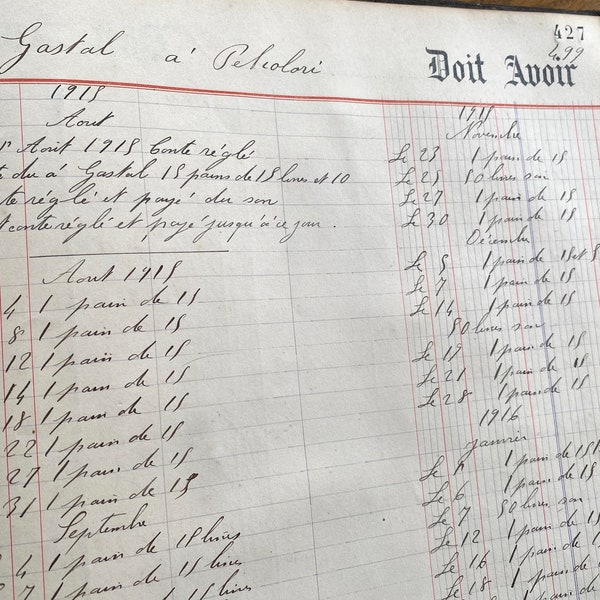 427
499
Gastal à
Doit Avoir
1915
Aout
Aout 1915 Conte réglé
du à Gastal 15 pains de 15 livres et 10
réglé et payé du son
conte réglé et payé jusqu'à ce jour.
Aout 1915
4 1 pain de 15
8 1 pain de 15
12 1 pain de 15
14 1 pain de 15
18 1 pain de 15
22 1 pain de 15
27 1 pain de 15
31 1 pain de 15
Septembre
4 1 pain de 15 livres
7 1 pain de 15 livres
1 pain de 15 livres
1915
Novembre
Le 23 1 pain de 15
Le 25 50 livres son
Le 27 1 pain de 15
Le 30 1 pain de 15
Décembre
Le 5 1 pain de 15 et 5
Le 7 1 pain de 15
Le 14 1 pain de 15
50 livres son
Le 19 1 pain de 15
Le 21 1 pain de 15
Le 28 1 pain de 15
1916
janvier
Le 1 1 pain de 15
Le 6 1 pain de 15
Le 7 50 livres son
Le 12 1 pain de 15
Le 16 1 pain de 15
Le 18 1 pain de